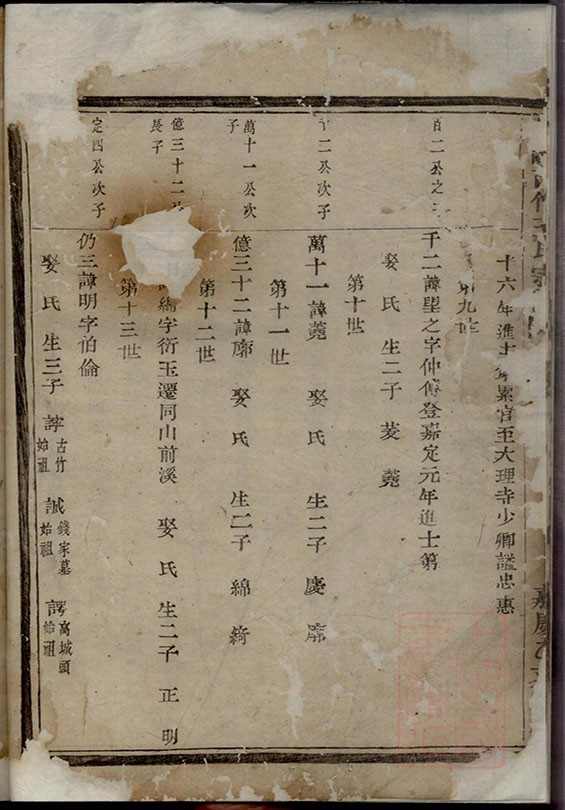 十六年進士 累官至大理寺少卿謚忠惠
第九世
百二公之
千二諱望之字仲傅登嘉定元年進士第
娶 氏 生二子 菱 蕘
第十世
千二公次子
萬十一諱蕘 娶 氏 生二子 慶 廗
第十一世
萬十一公次子
億三十二諱廗 娶 氏 生二子 綿 綺
第十二世
億三十二 長子
綿字衍玉遷同山前溪 娶 氏 生二子 正 明
第十三世
定四公次子
仍三諱明字伯倫
娶 氏 生三子 諄 古竹始祖 誠 錢家墓始祖 諤 高城頭始祖
嘉慶乙